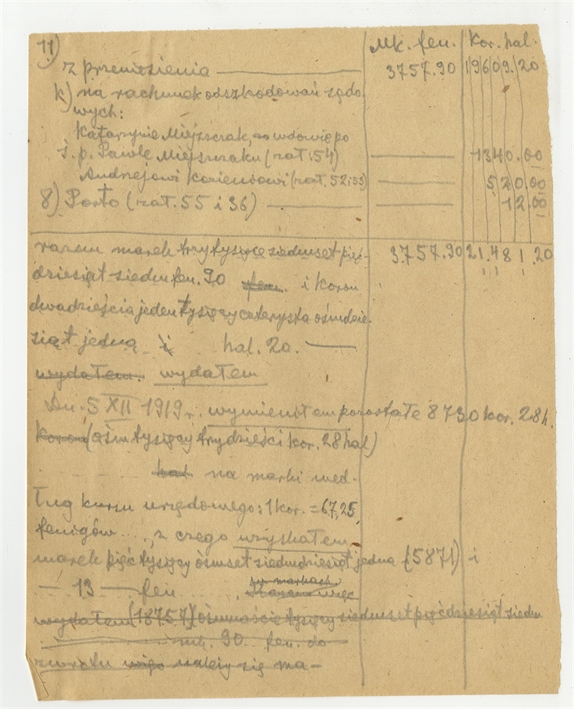 11)
Mk. fen. Kor. hal.
z przeniesienia 3757.90 19609.20
k) na rachunek odszkodowań sądo
wych:
Katarzynie Miejszczak, wdowie po
ś. p. Pawle Miejszczaku (zał. 54) 1340.00
Andrzejowi (zał. 52 i 53) 520.00
8) Porto (zał. 55 i 36) 12.00
razem marek trzy tysiące siedmset pięć- 3757.90 21.481.20
dziesiąt siedm fen. 90 fen. i koron
dwadzieścia jeden tysięcy czterysta ośmdzie-
siąt jedną i hal. 20.
wydałem. wydałem
Dn. 5 XII 1919 r. wymieniłem pozostałe 8730 kor. 28h.
Koron (ośm tysięcy trzydzieści kor. 28 hal)
hal na marki wed-
ług kursu urzędowego: 1 kor. = 67,25
fenigów..., z czego uzyskałem
marek pięć tysięcy ośmset siedmdziesiąt jedna (5871) i
— 13 — fen w markach
Razem więc
wydałem (18757) ośmnaście tysięcy siedmset pięćdziesiąt siedm
mk. 90. fen. do
zwrotu więc należy się ma-